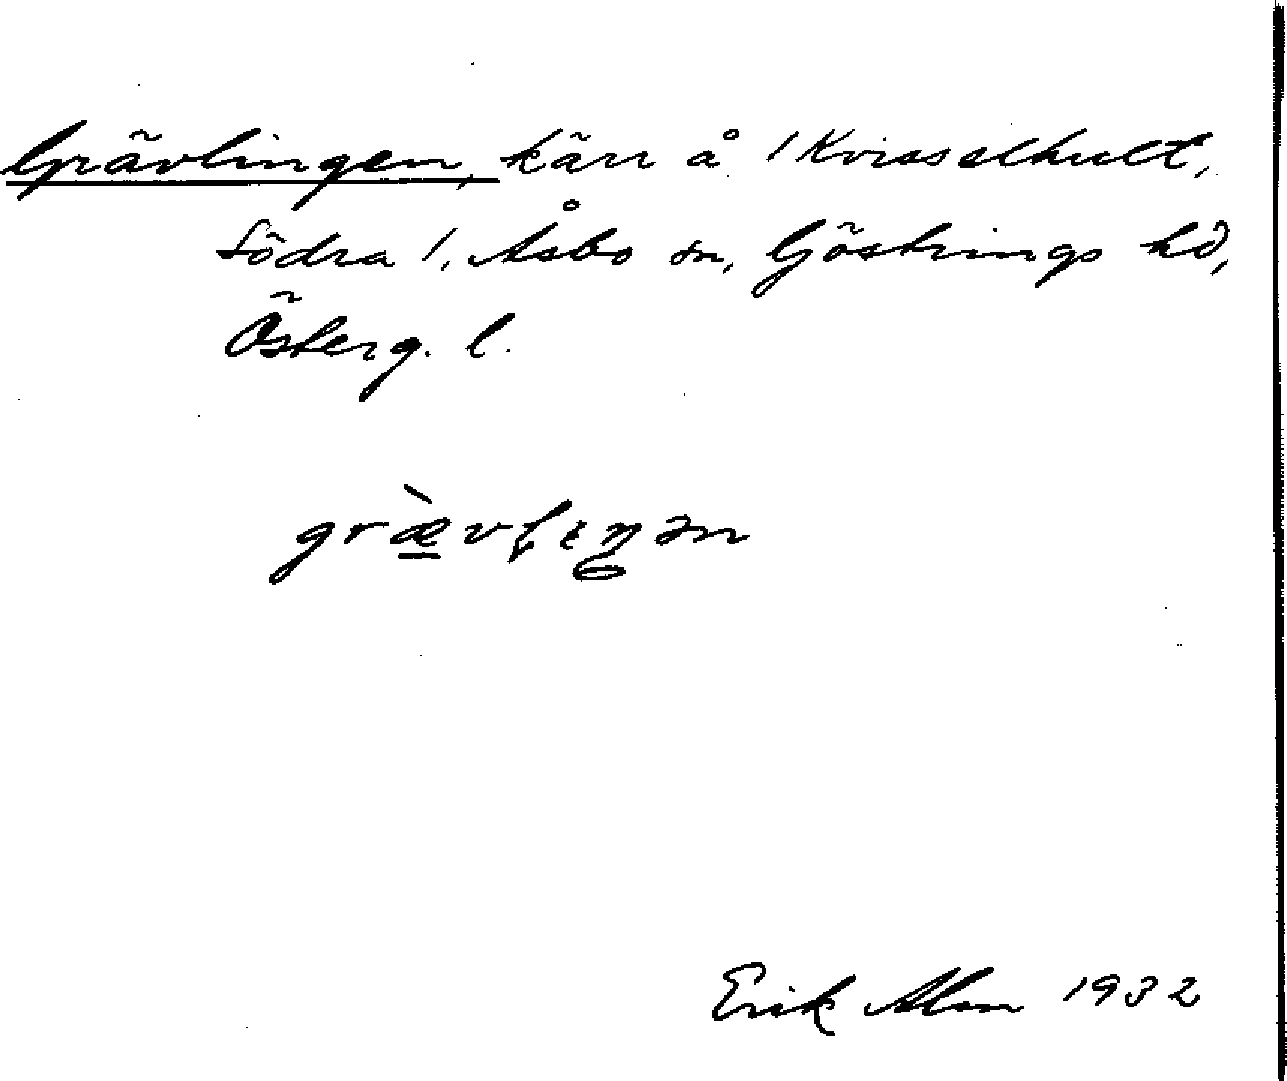 Grävlingen, kärr å /Kvisselhult,
Södra/, Åsbo sn, Göstrings hd,
Österg. l.
græ̀vlıŋən
Erik Alm 1932